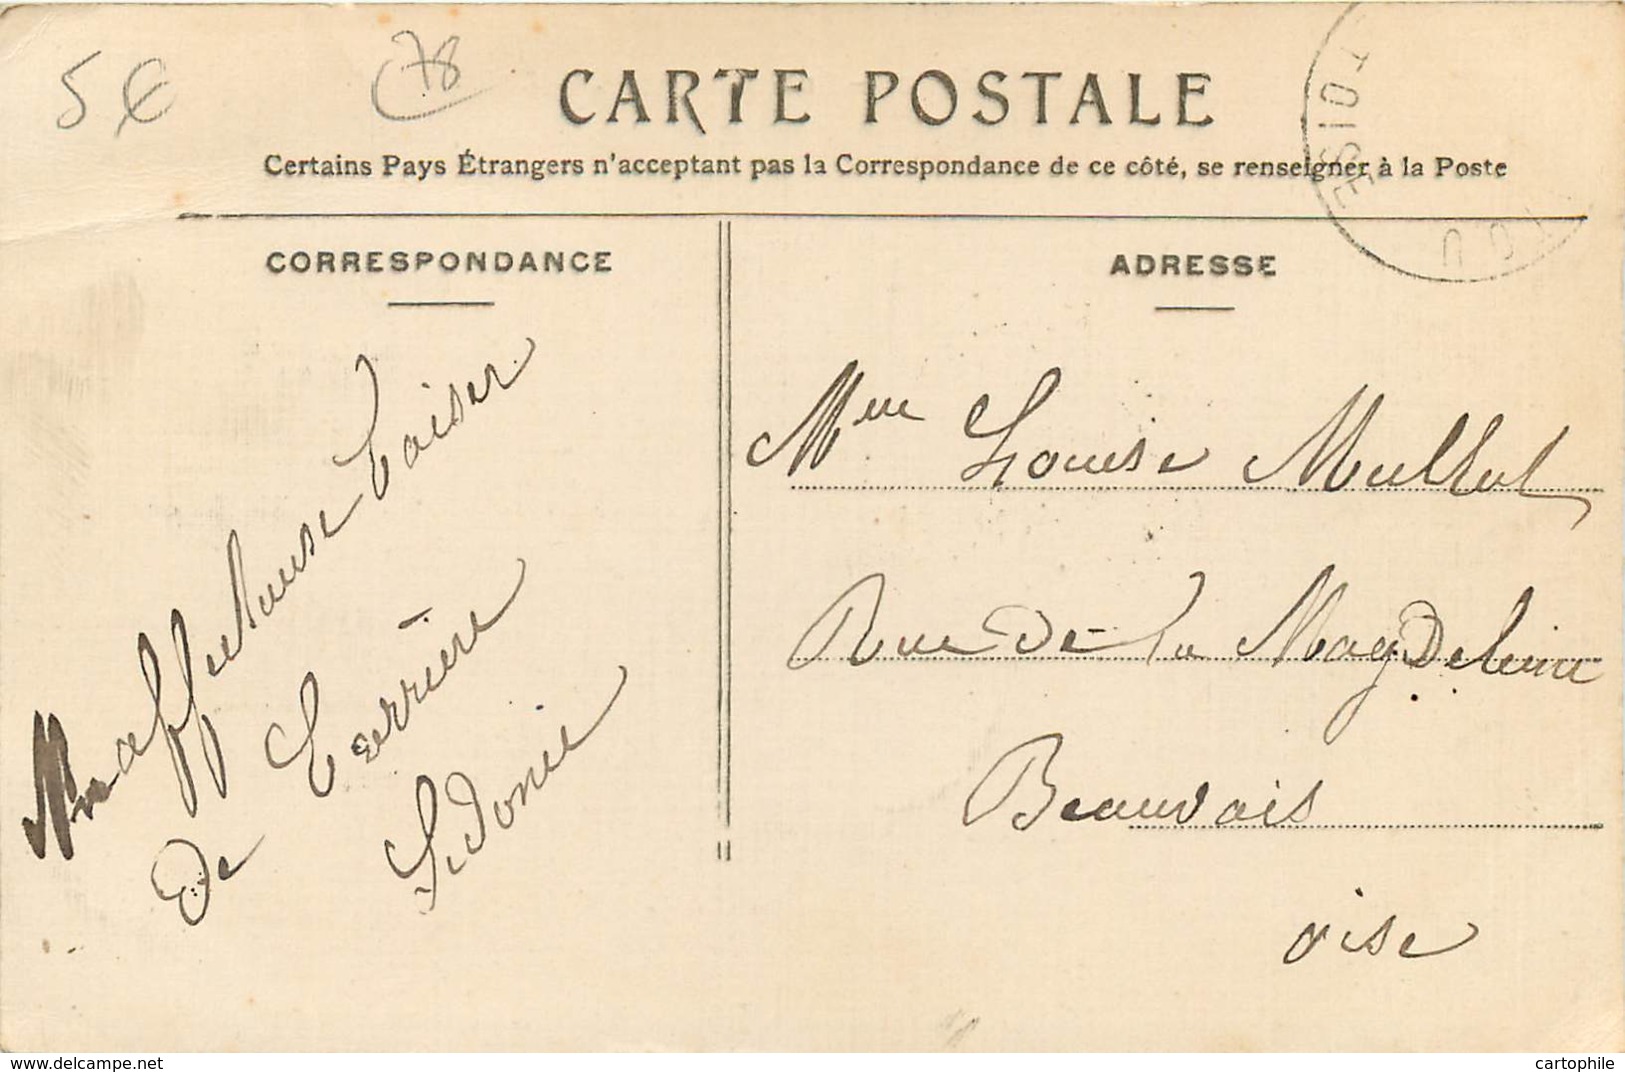 5 €
78
CARTE POSTALE
Certains Pays Étrangers n'acceptant pas la Correspondance de ce côté, se renseigner à la Poste
CORRESPONDANCE
affectueuse baiser
de
Ferrière
Sidonie
ADRESSE
Mme Louise Mullot
Rue de la MagDeleine
Beauvais
oise
delcampe.net
cartophile